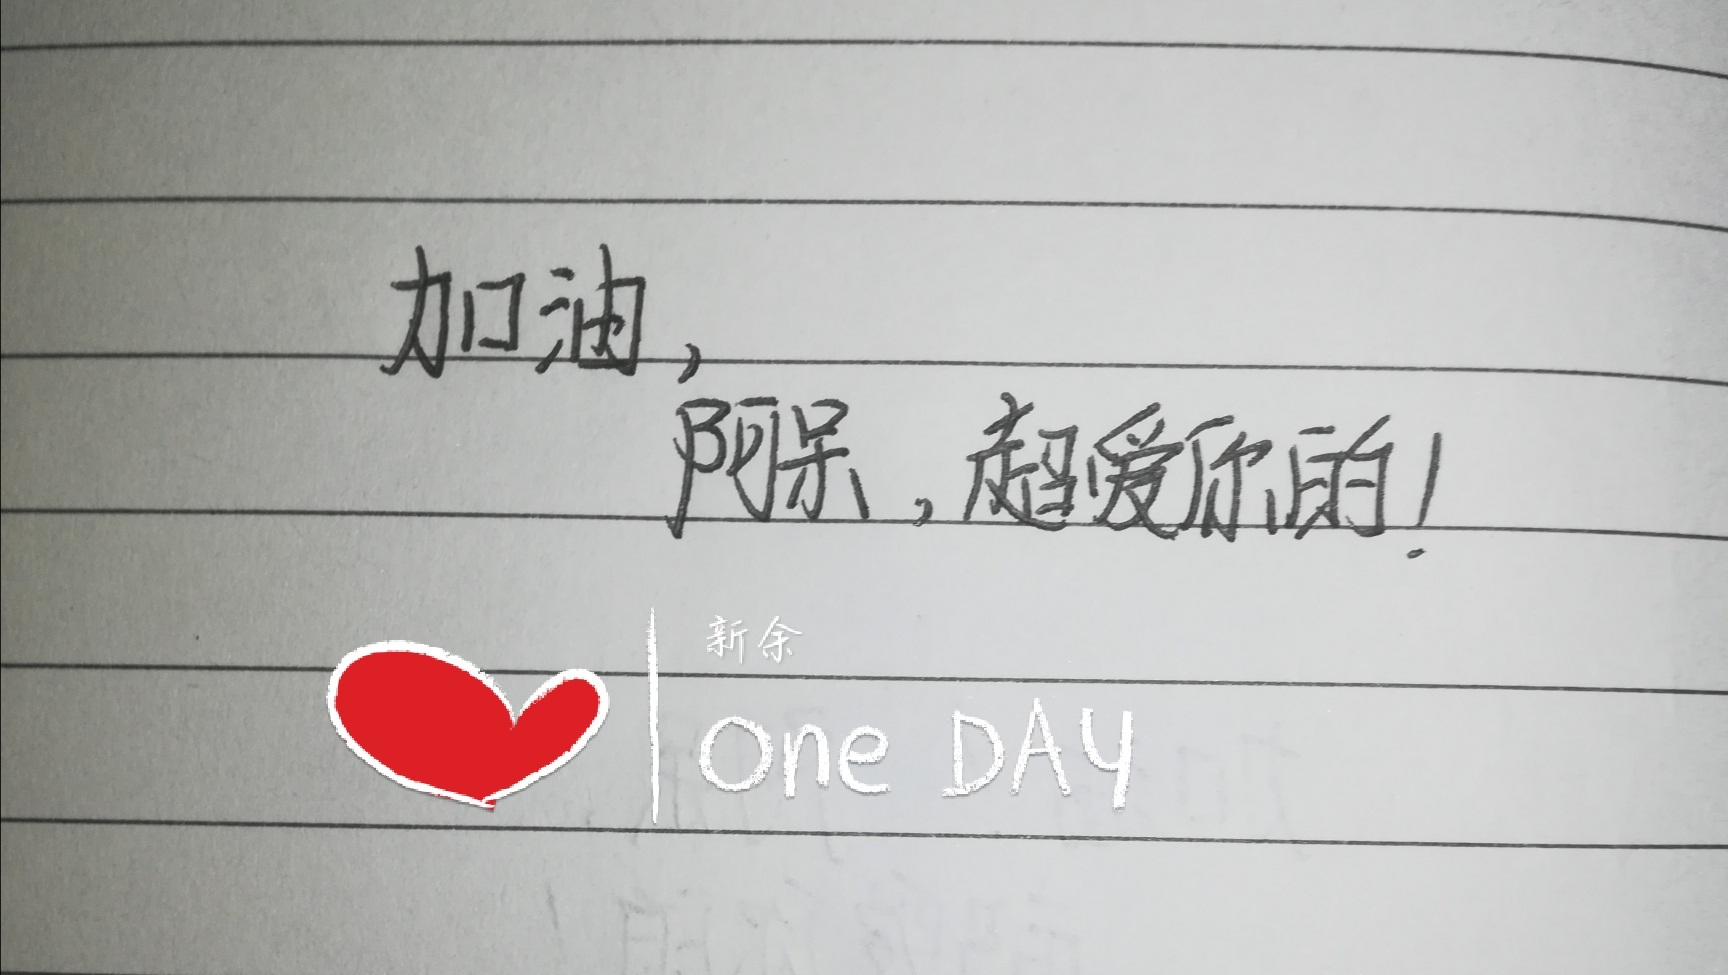 加油,
阿呆,超爱你的!
新余
one DAY